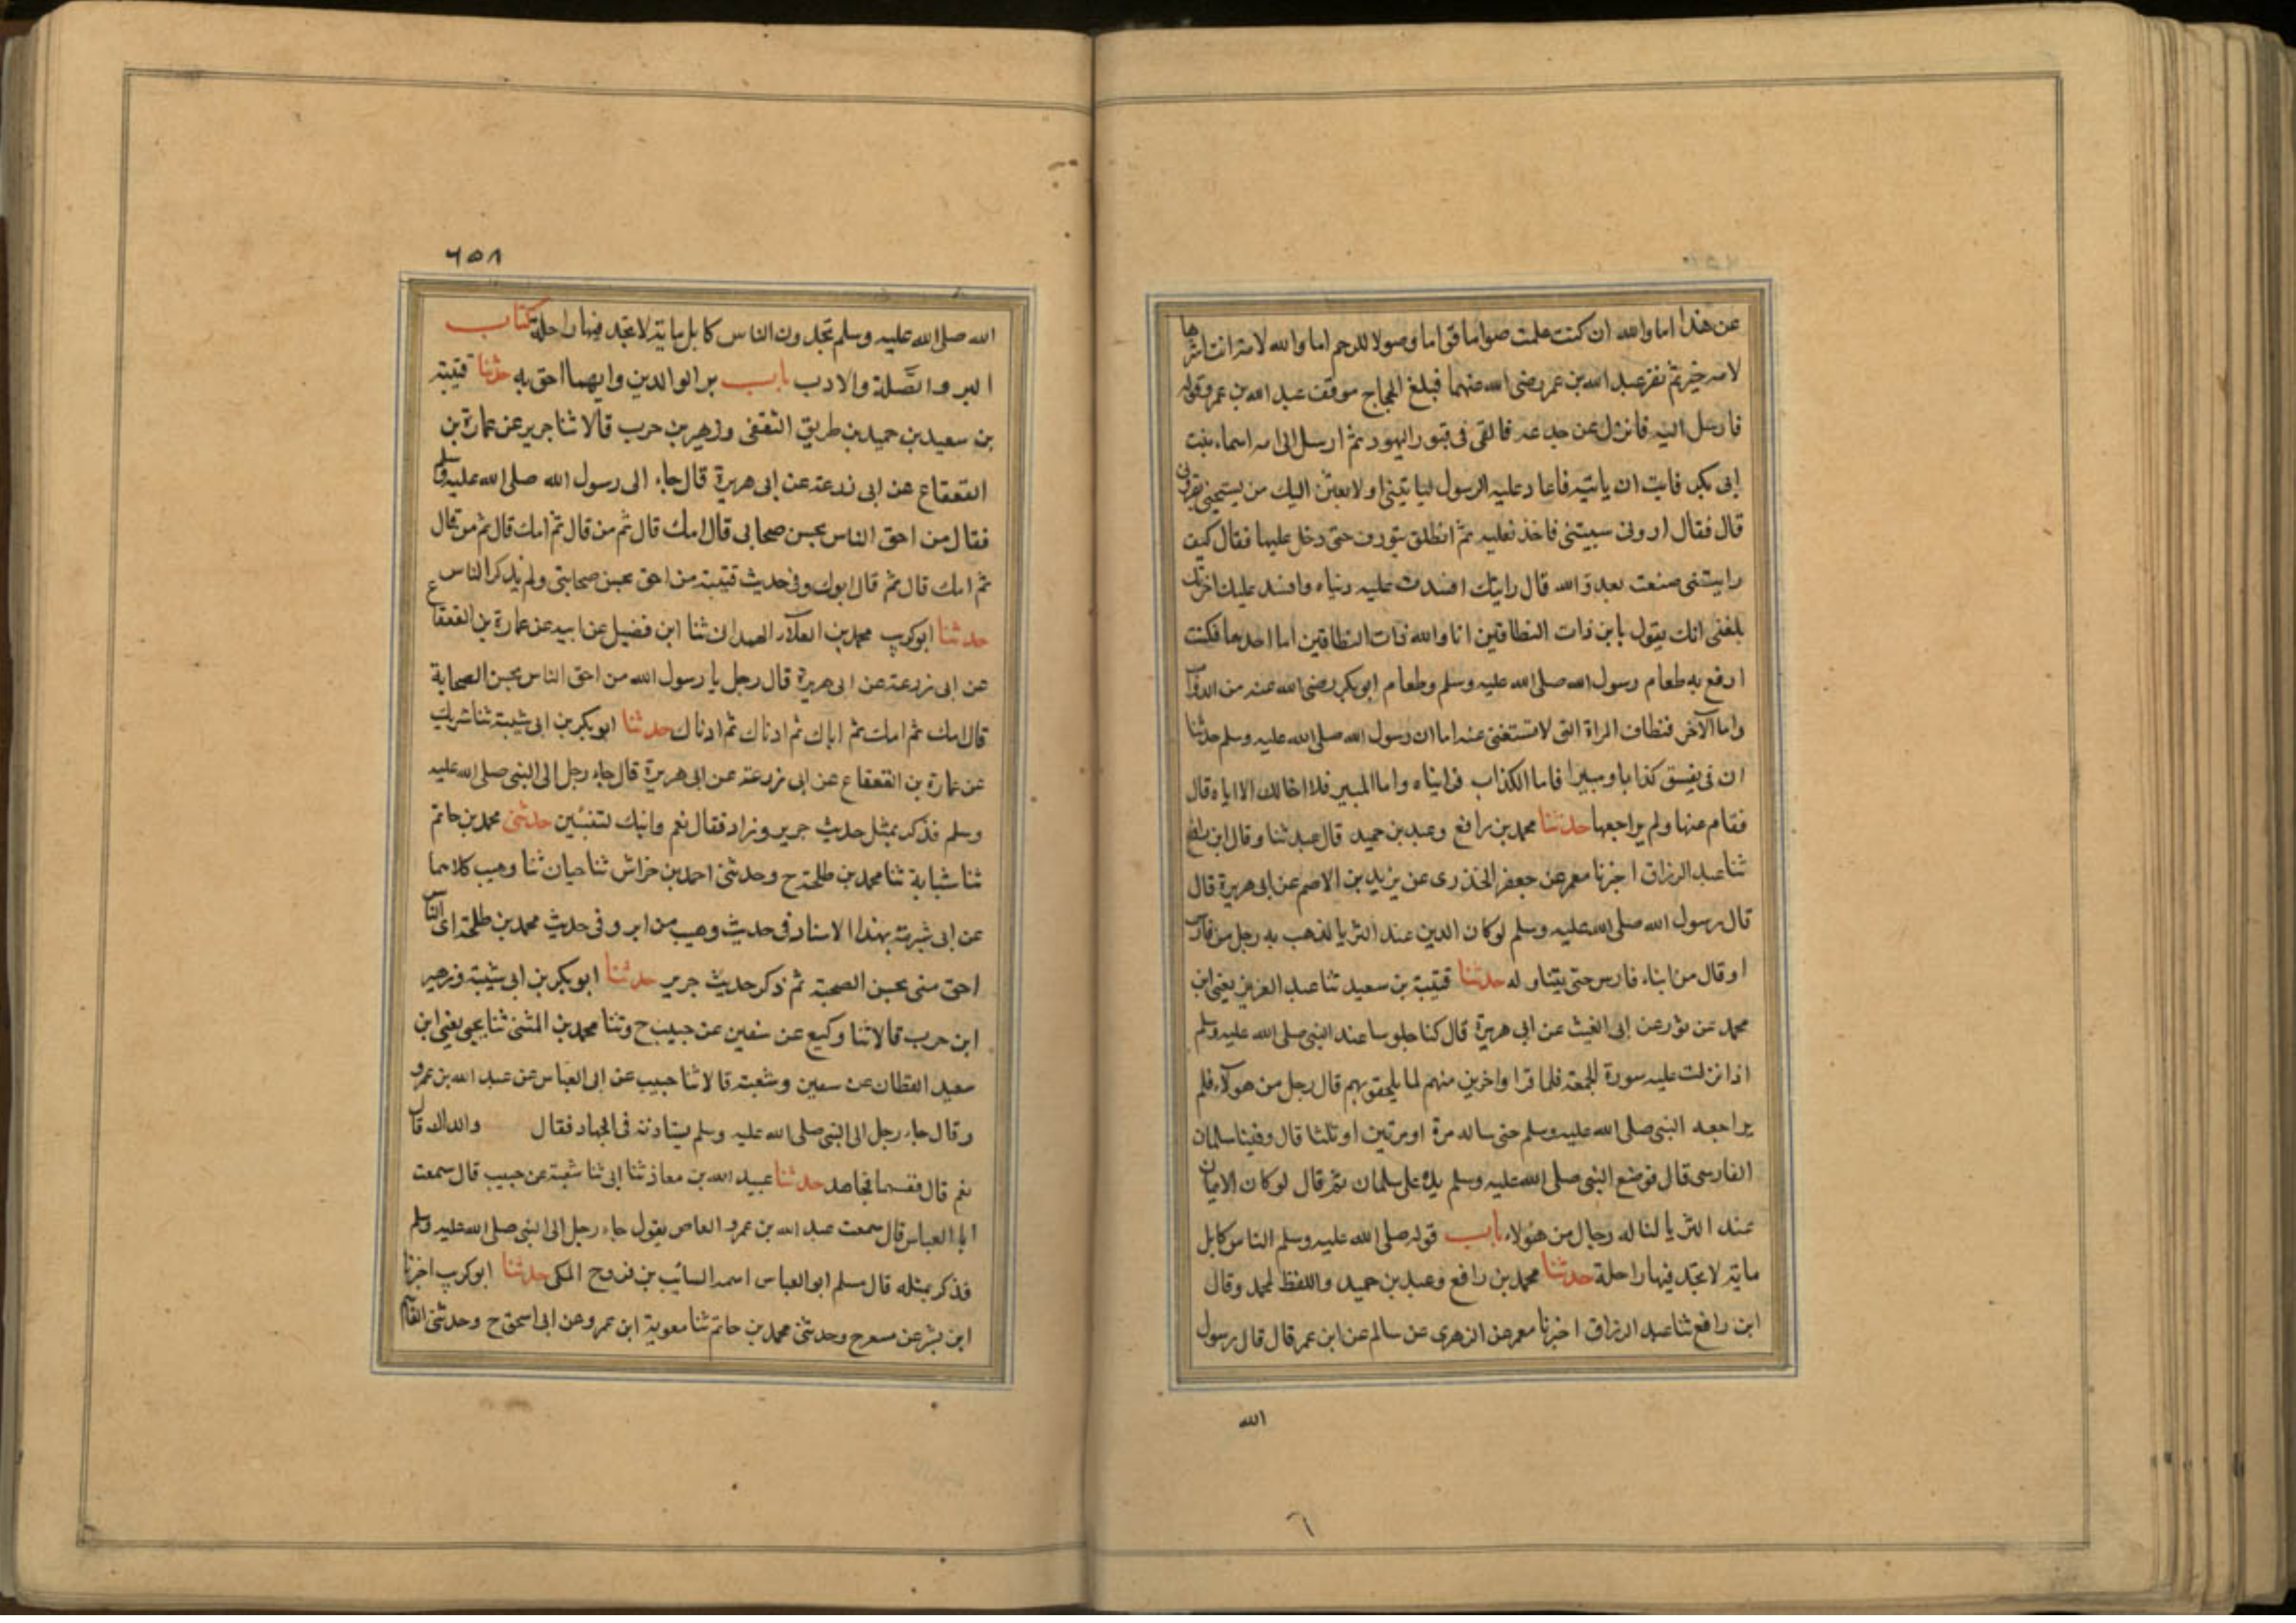 عن هذا اما والله ان كنت علمت صواما قواما وصولا للرحم اما والله لامة انت اشرها
لامة خير ثم نفر عبد الله بن عمر رضى الله عنهما فبلغ الحجاج موقف عبد الله بن عمر وقوله
فارسل اليه فانزل عن جذعه فالقى فى قبور اليهود ثم ارسل الى امه اسماء بنت
ابى بكر فابت ان ياتيه فاعاد عليه الرسول ليا تينى او لابعثن اليك من يسحبنى بقرونى
قال فقال ارونى سبيتنى فاخذ نعليه ثم انطلق يتوذف حتى دخل عليها فقال كيف
رايتنى صنعت بعدو الله قال رايتك افسدت عليه دنياه وافسد عليك اخرتك
بلغنى انك يقول يا بن ذات النطاقين انا والله ذات النطاقين اما احدهما فكنت
ارفع به طعام رسول الله صلى الله عليه وسلم وطعام ابوبكر رضى الله عنه من الدواب
واما الآخر فنطاق المراة التى لا تستغنى عنه اما ان رسول الله صلى الله عليه وسلم حدثنا
ان فى ثقيف كذابا ومبيرا فاما الكذاب فرايناه واما المبير فلا اخالك الا اياه قال
فقام عنها ولم يراجعها حدثنا محمد بن رافع وعبد بن حميد قال عبد ثنا وقال ابن رافع
ثنا عبد الرزاق اخبرنا معمر عن جعفر الخذرى عن يزيد بن الاصم عن ابى هريرة قال
قال رسول الله صلى الله عليه وسلم لو كان الدين عند الثريا لذهب به رجل من فارس
او قال من ابناء فارس حتى يتناوله حدثنا قتيبة بن سعيد ثنا عبد العزيز يعنى ابن
محمد عن ثور عن ابى الغيث عن ابى هريرة قال كنا جلوسا عند النبى صلى الله عليه وسلم
اذا نزلت عليه سورة الجمعة فلما قرا واخرين منهم لما يلحقوبهم قال رجل من هولاء فلم
يراجعه النبى صلى الله عليه وسلم حتى ساله مرة او مرتين او ثلثا قال وفينا سلمان
الفارسى قال فوضع النبى صلى الله عليه وسلم يده على سلمان ثم قال لو كان الايمان
عند الثريا لناله رجال من هؤلاء باب قوله صلى الله عليه وسلم الناس كابل
ماية لا تجد فيها راحلة حدثنا محمد بن رافع وعبد بن حميد واللفظ لمحمد وقال
ابن رافع ثنا عبد الرزاق اخبرنا معمر عن الزهرى عن سالم عن ابن عمر قال قال رسول
الله
٦
٦٥٨
الله صلى الله عليه وسلم تجدون الناس كابل ماية لا تجد فيها راحلة كتاب
البر والصّلة والادب باب بر الوالدين وايهما احق به حدثنا قتيبة
بن سعيد بن حميد بن طريق الثقفى وزهير بن حرب قالا ثنا جرير عن عمارة بن
القعقاع عن ابى زرعة عن ابى هريرة قال جاء الى رسول الله صلى الله عليه وسلم
فقال من احق الناس بحسن صحابى قال امك قال ثم من قال ثم امك قال ثم من قال
ثم امك قال ثم قال ابوك وفى حديث قتيبة من احق بحسن صحابتى ولم يذكر الناس
حدثنا ابوكريب محمد بن العلاء الهمدان ثنا ابن فضيل عن ابيه عن عمارة بن القعقاع
عن ابى زرعة عن ابى هريرة قال رجل يا رسول الله من احق الناس بحسن الصحابة
قال امك ثم امك ثم اباك ثم ادناك ثم ادناك حدثنا ابوبكر بن ابى شيبة ثنا شريك
عن عمارة بن القعقاع عن ابى زرعة عن ابى هريرة قال جاء رجل الى النبى صلى الله عليه
وسلم فذكر بمثل حديث جرير وزاد فقال نعم وابيك لتنبئن حدثنى محمد بن حاتم
ثنا شبابة ثنا محمد بن طلحة ح وحدثنى احمد بن خراش ثنا حبان ثنا وهيب كلاهما
عن ابى شبرمة بهذا الاسناد فى حديث وهيب من ابر وفى حديث محمد بن طلحة اى الناس
احق منى بحسن الصحبة ثم ذكر حديث جرير حدثنا ابوبكر بن ابى شيبة وزهير
ابن حرب قالا ثنا وكيع عن سفين عن حبيب ح وثنا محمد بن المثنى ثنا يحيى يعنى ابن
سعيد القطان عن سفين وشعبة قالا ثنا حبيب عن ابى العباس عن عبد الله بن عمرو
وقال جاء رجل الى النبى صلى الله عليه وسلم يستاذنه فى الجهاد فقال والداك قال
نعم قال ففيهما فجاهد حدثنا عبيد الله بن معاذ ثنا ابى ثنا شعبة عن حبيب قال سمعت
ابا العباس قال سمعت عبد الله بن عمرو العاص يقول جاء رجل الى النبى صلى الله عليه وسلم
فذكر بمثله قال مسلم ابو العباس اسمه السائب بن فروح المكى حدثنا ابوكريب اخبرنا
ابن بشر عن مسعر ح وحدثنى محمد بن حاتم ثنا معوية ابن عمرو عن ابى اسحق ح وحدثنى القاسم